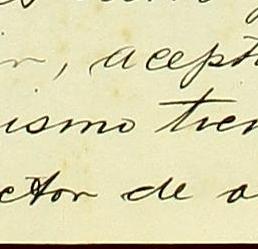 , acept
ismo tien
ctor de a